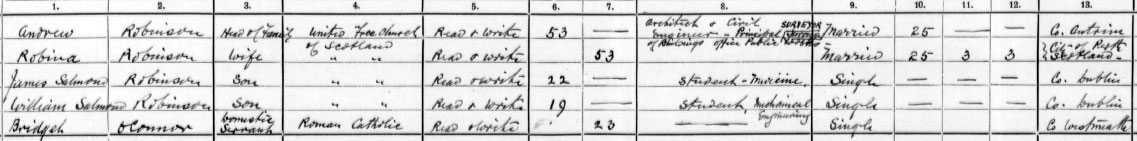 1. 2. 3. 4. 5. 6. 7. 8. 9. 10. 11. 12. 13.
Andrew Robinson Head of Family United Free Church of Scotland Read & write 53 — Architect & Civil Engineer - Principal SURVEYOR of Buildings office Public Works Married 25 — Co. Antrim
Robina Robinson Wife " " Read & write 53 Married 25 3 3 City of Perth Scotland
James Salmond Robinson Son " " Read & write 22 — Student - Medicine. Single — — — Co. Dublin
William Salmond Robinson Son " " Read & write 19 — Student, Mechanical Engineering Single — — — Co. Dublin
Bridget O'Connor Domestic Servant Roman Catholic Read & write 23 — Single Co Westmeath